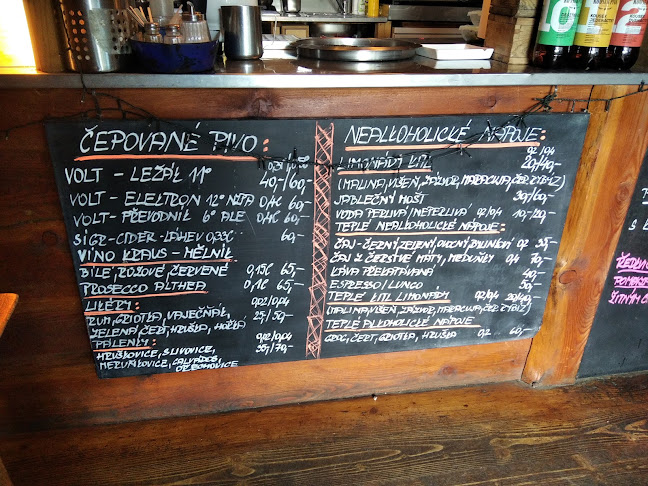 ČEPOVANÉ PIVO:
VOLT - LEŽÁK 11° 40,-/60,-
VOLT - ELEKTRON 12° NZTA 0,4L 60,-
VOLT - PŘEVODNÍK 6° ALE 0,4L 60,-
CIDER - LÁHEV 0,33L 60,-
VÍNO KRAUS - MĚLNÍK
BÍLÉ, RŮŽOVÉ, ČERVENÉ 0,15L 65,-
PROSECCO ALTHEA 0,1L 65,-
LIKÉRY: 0,02/0,04
RUM, GRIOTKA, VAJEČŇÁK, 25/50,-
ZELENÁ, ČERT, HRUŠKA, HOŘKÁ
PÁLENKY: 0,02/0,04
HRUŠKOVICE, SLIVOVICE, 35/70,-
MERUŇKOVICE, CALVADOS,
OŘECHOVICE
NEALKOHOLICKÉ NÁPOJE:
0,2 / 0,4
LIMONÁDY KITL 20/40,-
(MALINA, VIŠEŇ, ZÁZVOR, MARACUJA, ČER. RYBÍZ)
JABLEČNÝ MOŠT 30/60,-
VODA PERLIVÁ/NEPERLIVÁ 0,2/0,4 10,-/20,-
TEPLÉ NEALKOHOLICKÉ NÁPOJE:
ČAJ - ČERNÝ, ZELENÝ, OVOCNÝ, BYLINKOVÝ 0,2 35,-
ČAJ Z ČERSTVÉ MÁTY, MEDUŇKY 0,4 70,-
KÁVA PŘEKAPÁVANÁ 40,-
ESPRESSO/LUNGO 50,-
TEPLÉ KITL LIMONÁDY 0,2/0,4 20/40,-
(MALINA, VIŠEŇ, ZÁZVOR, MARACUJA, ČER. RYBÍZ)
TEPLÉ ALKOHOLICKÉ NÁPOJE
GROG, ČERT, GRIOTKA, HRUŠKA 0,2 60,-